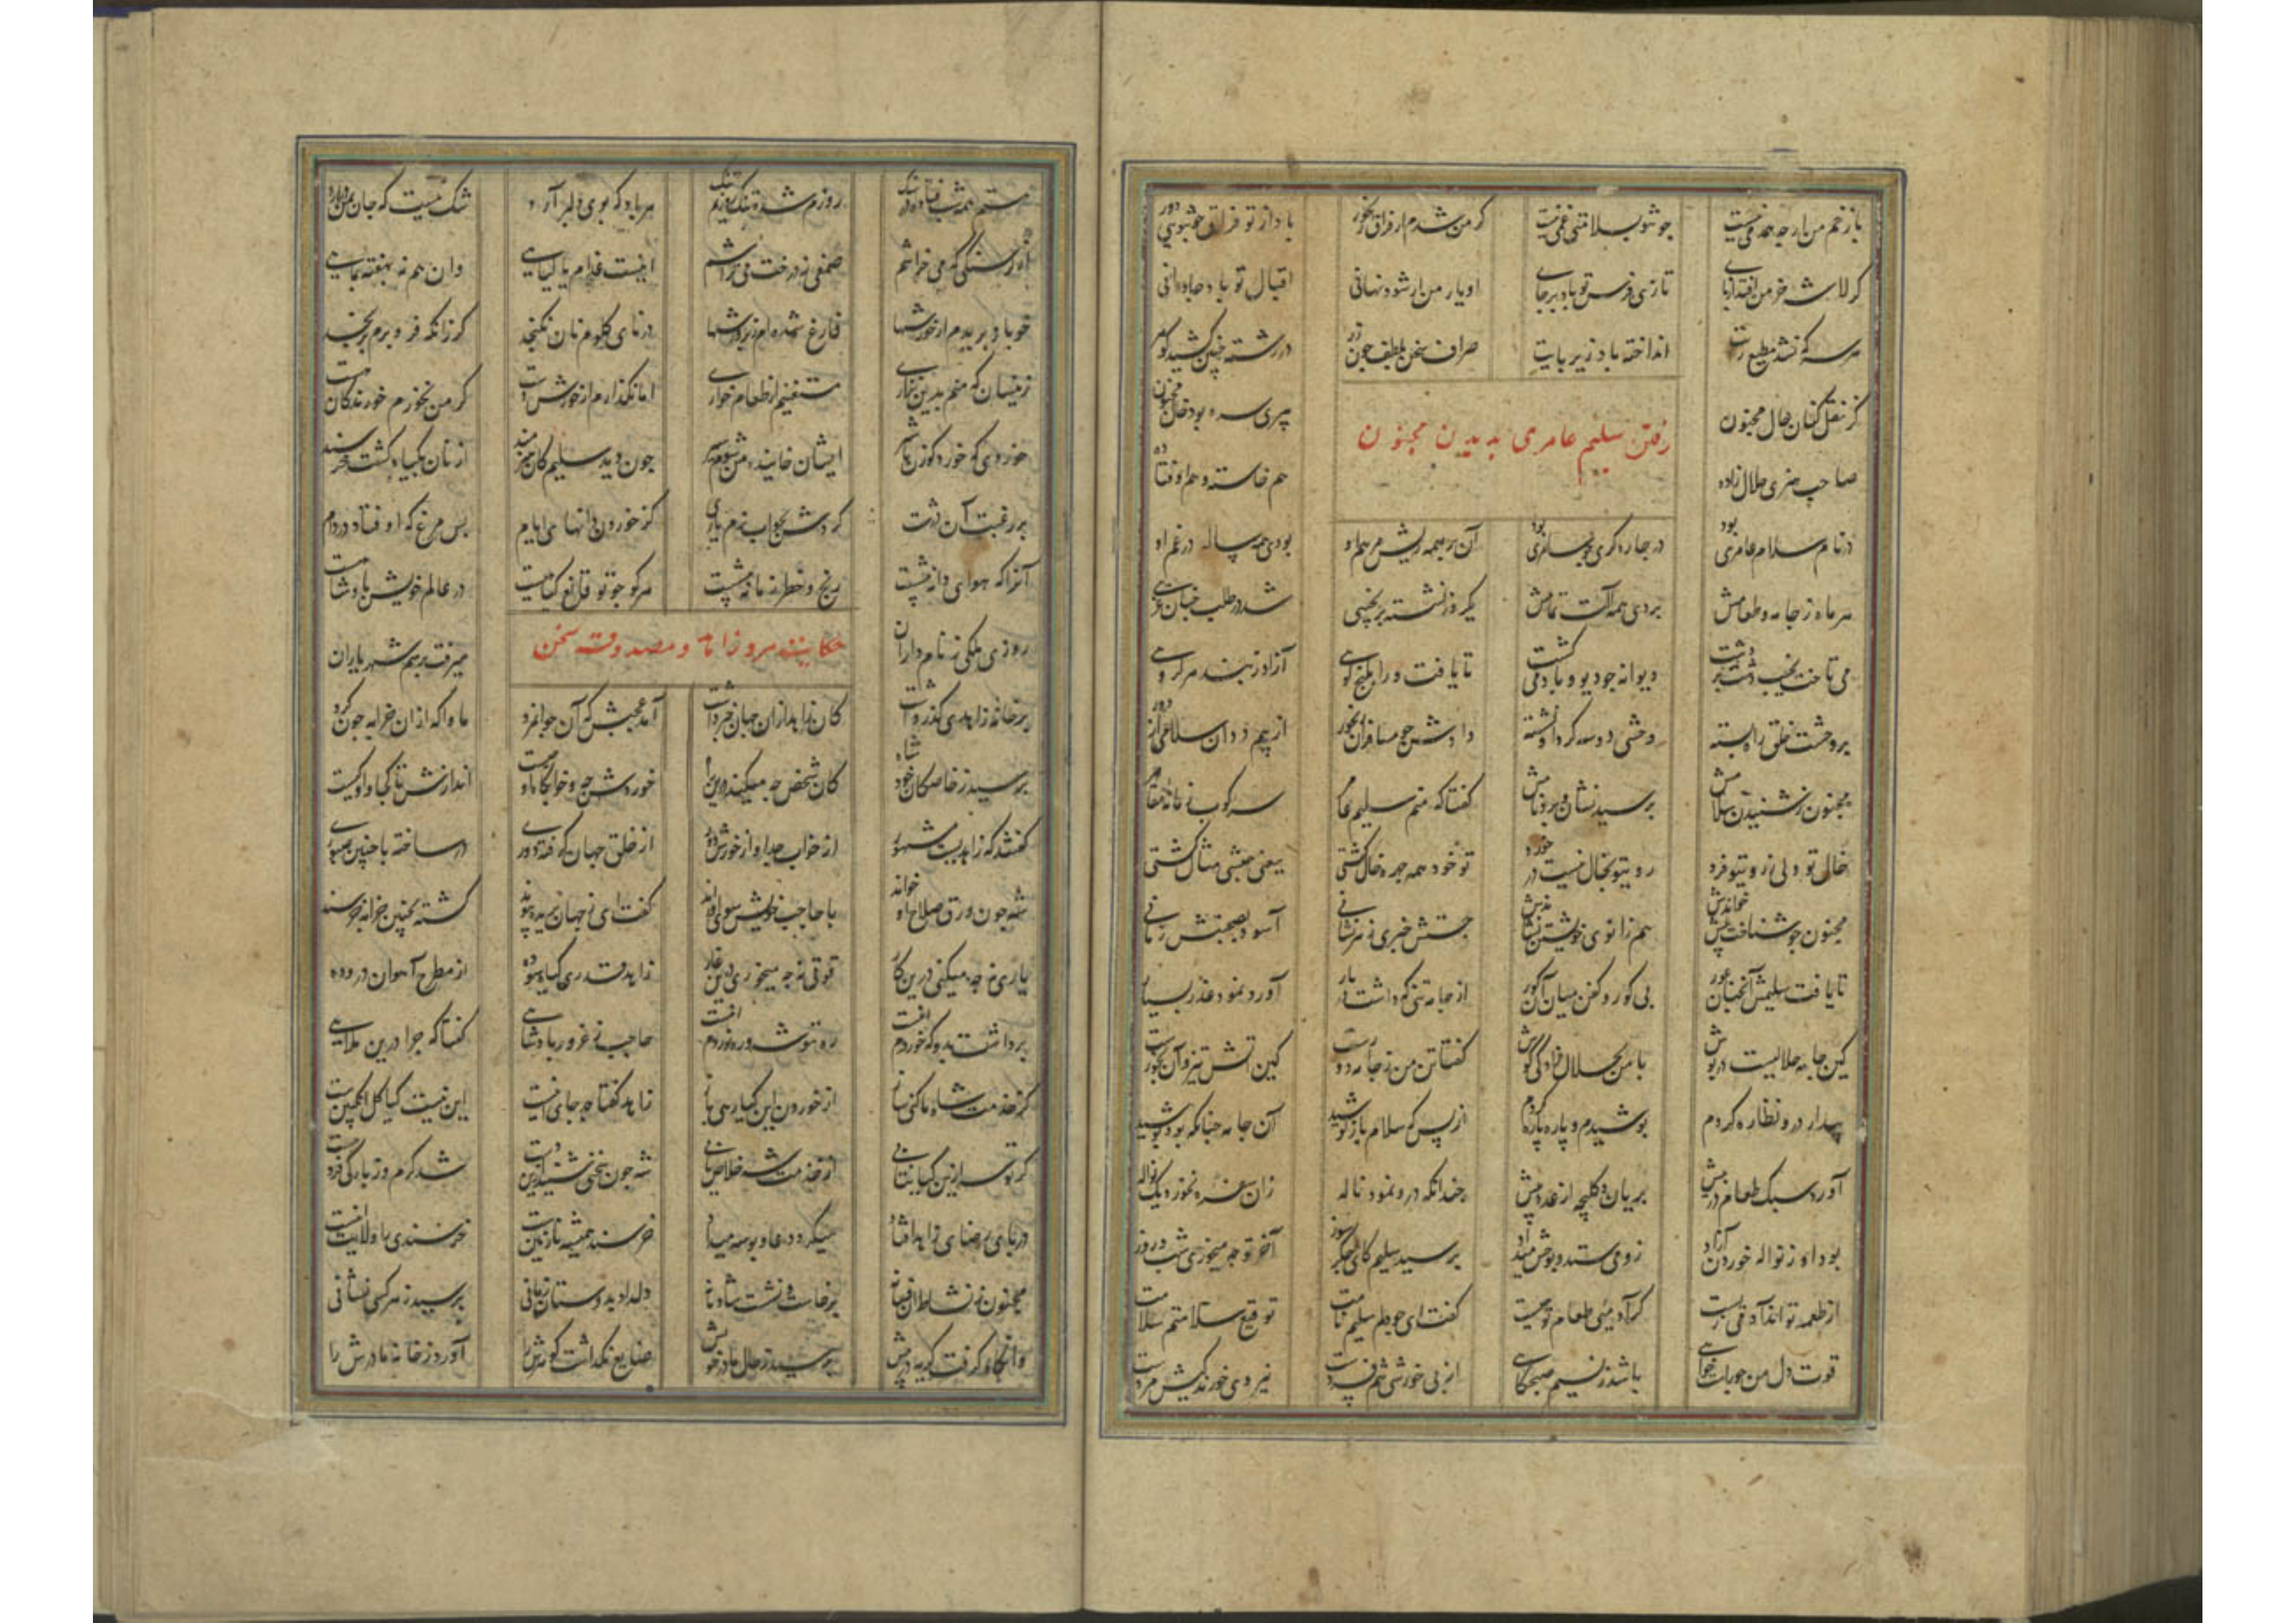 با زخم من ارچه مرهمی نیست چو تو بسلامتی غمی نیست گر من شدم از فراق رنجور باد از تو فراق چشم بد دور
گر لاشه خر من افتد از پای تازی فرس تو باد بر جای او یار من ار شود نهانی اقبال تو باد جاودانی
هر سر که نشد مطیع رایت انداخته باد زیر پایت صراف سخن بلطف چون در در رشته چنین کشید
رفتن سلیم عامری بدیدن مجنون
کز نقل کنان حال مجنون پیری سره بود خال مجنون
صاحب هنری حلال زاده هم خاسته و هم اوفتاده
در نام سلام عامری بود در چاره گری چو سامری بود آن بر همه ریش مرهم او بودی همه ساله در غم او
هر ماه ز جامه و طعامش بردی همه آلت تمامش یکروز نشسته بر نجیبی شد در طلب چنان غریبی
می تاخت نجیب دشت بر دشت دیوانه چو دیو باد می گشت تا یافت ورا بکنج کوهی آزاد ز بند هر گروهی
بر وحشت خلق راه بسته وحشی دوسه گرد او نشسته دادش چو مسافران رنجور از بیم ددان سلامی از دور
مجنون ز شنیدن سلامش پرسید نشان و برد نامش گفتا که منم سلیم عامر سرکوب زمانه مقامر
خال تو ولی ز روی تو فرد روی تو بخال نیست در خورد تو خود همه چهره خال گشتی یعنی حبشی مثال گشتی
مجنون چو شناخت پیش خواندش هم زانوی خویشتن نشاندش جستش خبری ز هر نشانی آسود بصحبتش زمانی
تا یافت سلیمش آنچنان عور بی گور و کفن میان آن گور از جامه تنی که داشت در بار آورد نمود عذر بسیار
کین جامه حلالیست در پوش با من بحلال زادگی کوش گفتا تن من ز جامه دورست کین آتش تیز و آن بخورست
پندار درو نظاره کردم پوشیدم و پاره پاره کردم از بس که سلام باز کوشید آن جامه چنانکه بود پوشید
آورد سبک طعام در پیش بریان و کلیچه از عدد بیش چندانکه درو نمود ناله زان سفره نخورد یک نواله
بود او ز نواله خوردن آزاد زو می ستد و بوحش میداد پرسید سلیم کای جگر سوز آخر تو چه میخوری شب و روز
از طعمه تواند آدمی زیست گر آدمیی طعام تو چیست گفت ای چو دلم سلیم نامت توقیع سلامتم سلامت
قوت دل من چو یافت خواهی باشد ز نسیم صبحگاهی از بی خورشی تنم فسردست نیروی خورندگیش مردست
هر باد که بوی دلبر آرد شک نیست که جان بمن در آرد
آن ز سنگی که می خراشم صمغی ز درخت می تراشم اینست غذام یا گیاهی وان هم نه بهفته بماهی
خو باز بریدم از خورشها فارغ شده ام ز پرورشها در نای گلوم نان نگنجد گر زانکه فرو برم برنجد
زینسان که منم بدین نزاری مستغنیم از طعام خواری اما نگذارم از خورش دست گر من نخورم خورندگان هست
خوردی که خورد گوزن یا شیر ایشان خایند و من شوم سیر چون دید سلیم کان هنرمند از نان بگیاه گشت خرسند
بر رغبت آن درشت کردش بجواب نرم یاری کز خوردن دانه های ایام بس مرغ که اوفتاد در دام
آنرا که هوای دانه بیشست رنج و خطر زمانه بیشست هر کو چو تو قانع گیاهست در عالم خویش پادشاهست
روزی ملکی ز نامداران میرفت برسم شهریاران
بر خانه زاهدی گذر داشت کان زاهد از آن جهان خبر داشت آمد عجبش که آن جوانمرد ماوا گه از آن خرابه چون کرد
پرسید ز خاصگان خود شاه کان شخص چه میکند درین راه خوردش چه و خوابگاه او چیست اندازه ش تا کجا و او کیست
گفتند که زاهدیست مشهور از خواب جدا و از خورش دور از خلق جهان گرفته دوری در ساخته با چنین صبوری
شه چون ورق صلاح او خواند با حاجب خویش سوی او راند گفت ای ز جهان بریده پیوند گشته بچنین خرابه خرسند
یاری نه چه میکنی درین کار قوتی نه چه میخوری درین غار زاهد قدری گیاه سوده از مطرح آهوان دروده
برداشت بدو که خوردم اینست ره توشه و ره نوردم اینست حاجب ز غرور پادشاهی گفتا که چرا درین بلایی
گر خدمت شاه ما کنی ساز از خوردن این گیا رهی باز زاهد گفتا چه جای اینست این نیست گیا گل انگبینست
گر تو سر ازین گیا بتابی از خدمت شه خلاص یابی شه چون سخنی شنید ازین دست شد گرم و ز بارگی فرو جست
در پای رضای زاهد افتاد میکرد دعا و بوسه میداد خرسند همیشه نازنینست خرسندی را ولایت اینست
مجنون ز نشاط آن فسانه برخاست و نشست شادمانه دل داد بدوستان زمانی پرسید ز هر کسی نشانی
وانگاه گرفت گریه در پیش پرسید ز حال مادر خویش ضایع نگذاشت گوهرش را آورد ز خانه مادرش را